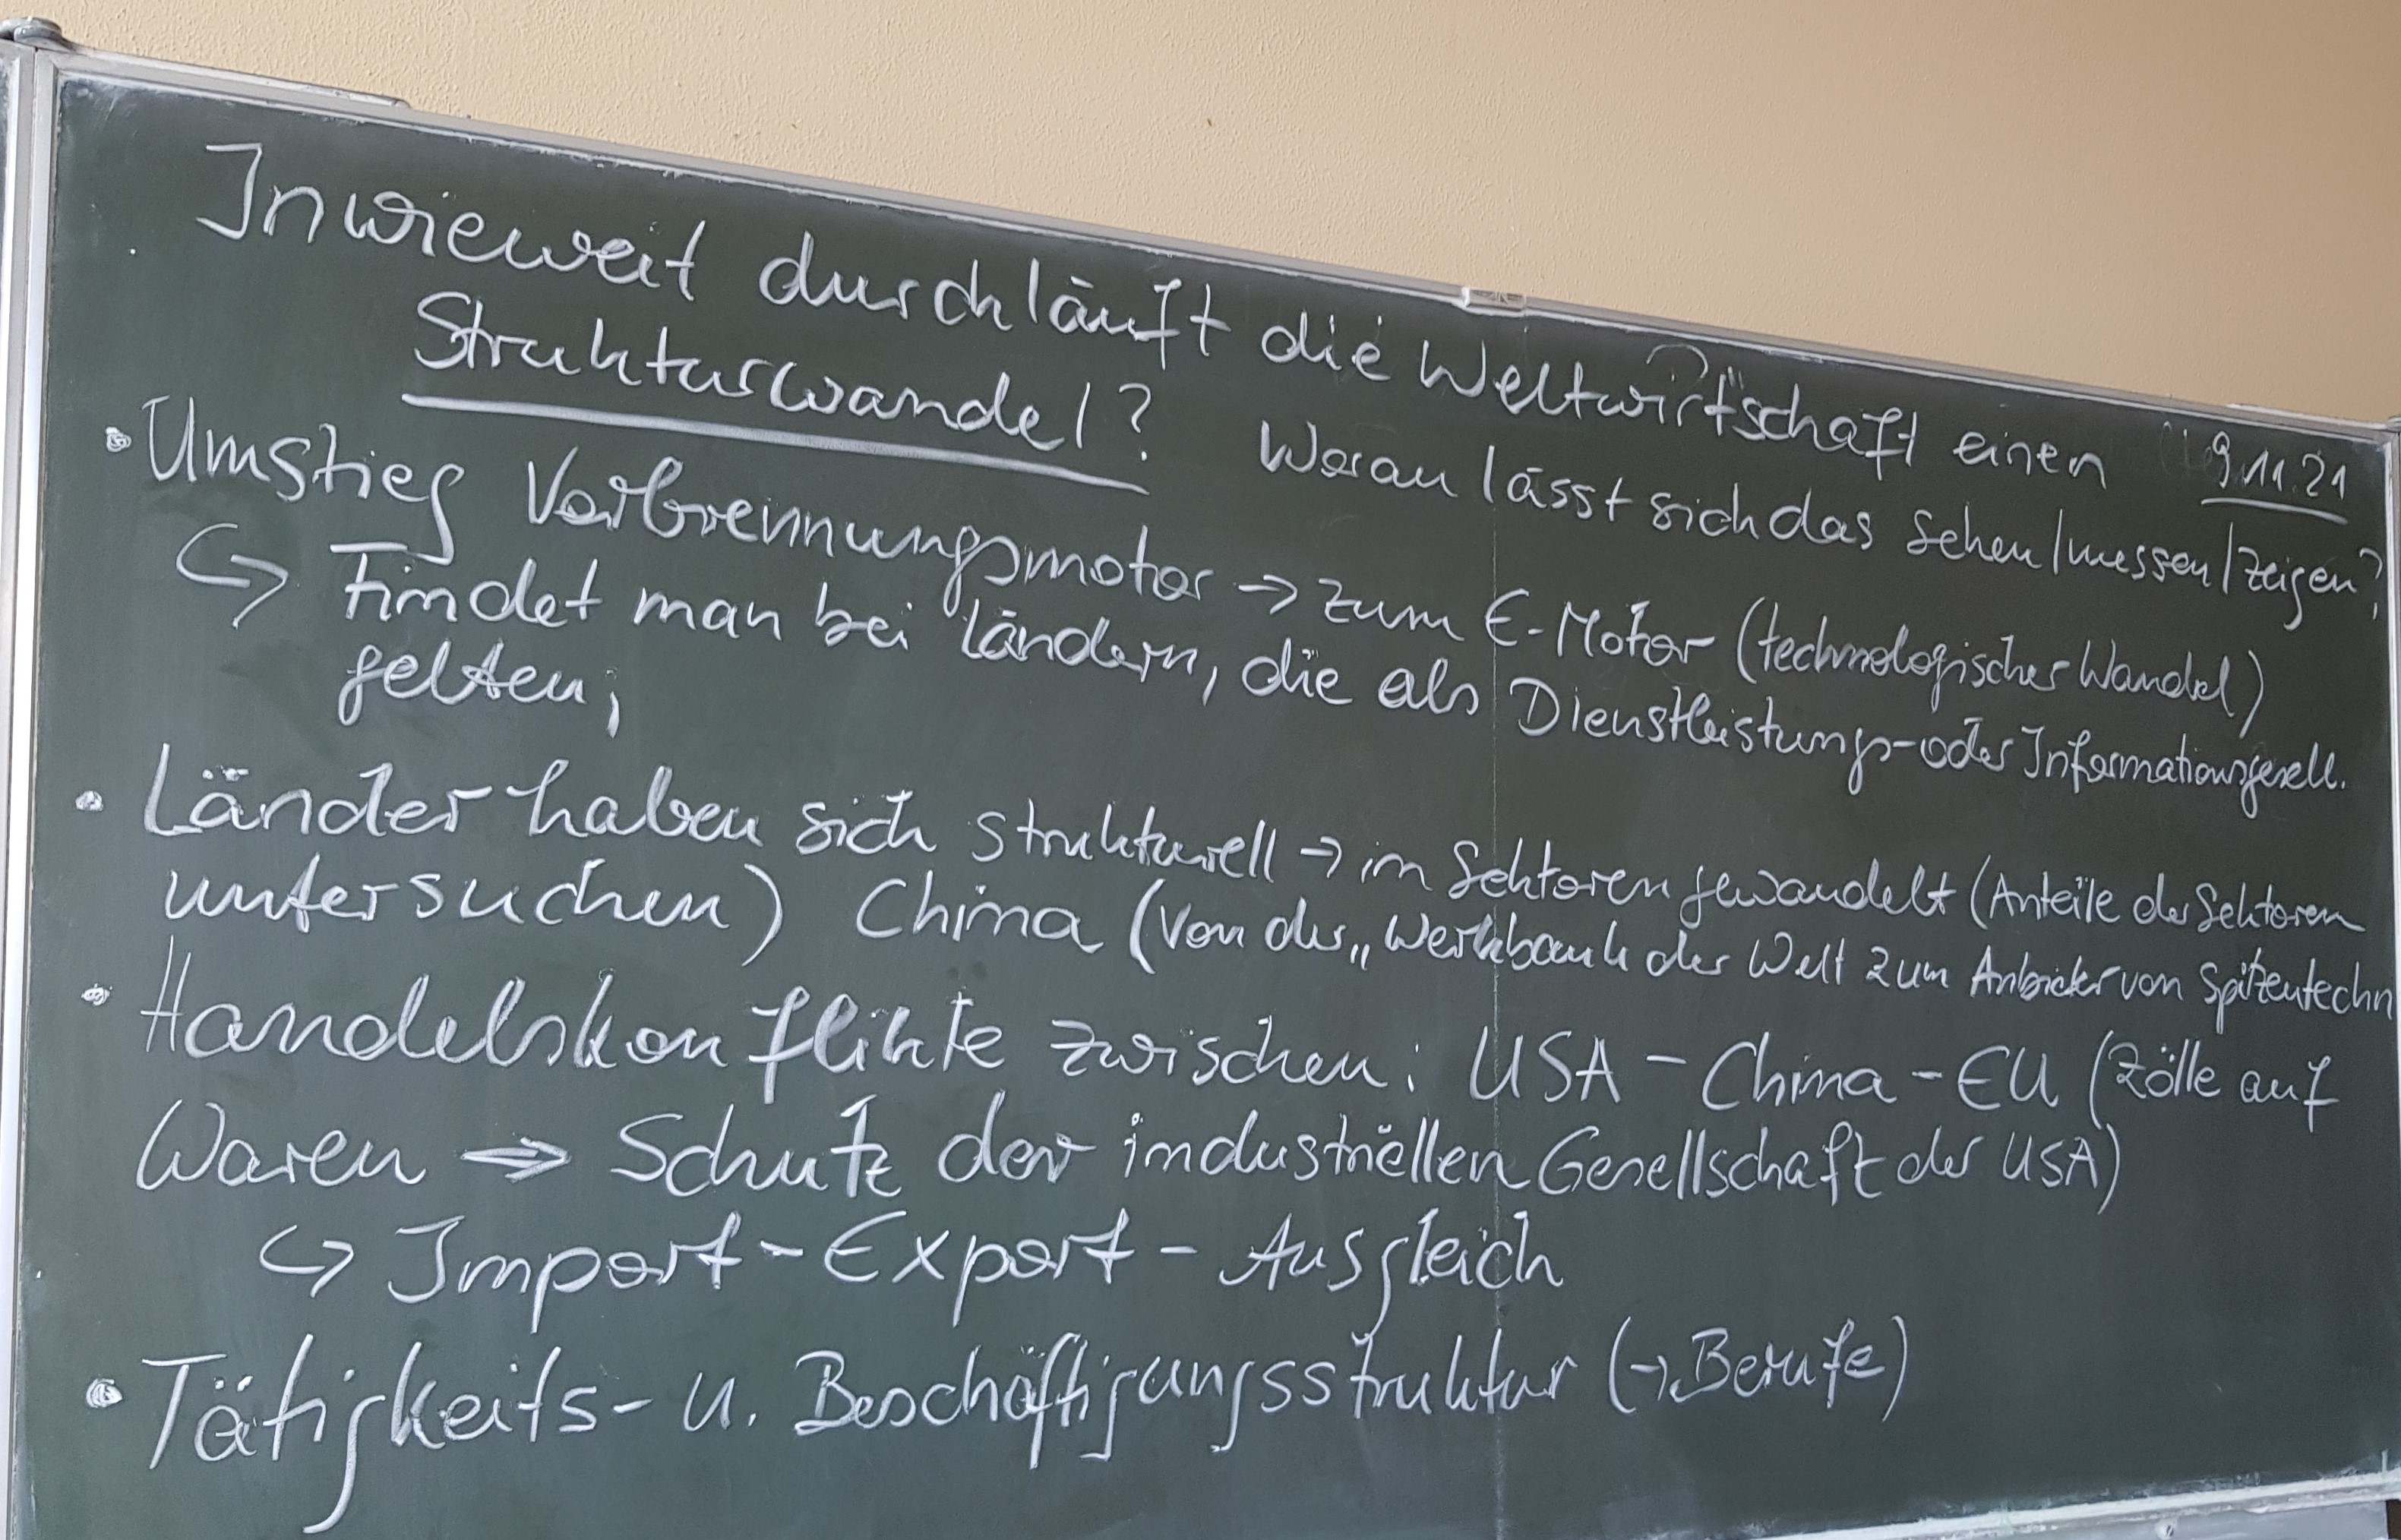 Inwieweit durchläuft die Weltwirtschaft einen
9.11.21
Strukturwandel? Woran lässt sich das sehen/messen/zeigen?
• Umstieg Verbrennungsmotor → zum E-Motor (technologischer Wandel)
↪ Findet man bei Ländern, die als Dienstleistungs-oder Informationsgesell.
gelten;
• Länder haben sich strukturell → in Sektoren gewandelt (Anteile der Sektoren
untersuchen) China (Von der „Werkbank der Welt zum Anbieter von Spitzentechn
• Handelskonflikte zwischen: USA - China - EU (Zölle auf
Waren ⇒ Schutz der industriellen Gesellschaft der USA)
↪ Import-Export-Ausgleich
• Tätigkeits- u. Beschäftigungsstruktur (→ Berufe)